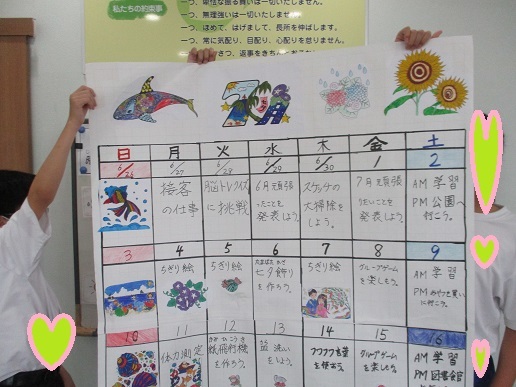 私たちの約束事
一つ、卑怯な振る舞いは一切いたしません。
一つ、無理強いは一切いたしません。
一つ、ほめて、はげまして、長所を伸ばします。
一つ、常に気配り、目配り、心配りを怠りません。
さつ、返事をきちん
日 月 火 水 木 金 土
6/26 6/27 6/28 6/29 6/30 1 2
接客の仕事
脳トレクイズに挑戦
6月頑張ったことを発表しよう
スケッチの大掃除をしよう。
7月頑張りたいことを発表しよう
AM 学習
PM 公園へ行こう。
3 4 5 6 7 8 9
ちぎり絵
ちぎり絵
七夕飾りを作ろう。
ちぎり絵
グループゲームを楽しもう。
AM 学習
PM おやつを買いに行こう。
10 11 12 13 14 15 16
体力測定
紙飛行機を作ろう
皿洗いをしよう
フワフワ言葉を作ろう
グループゲームを楽しもう
AM 学習
PM 図書館